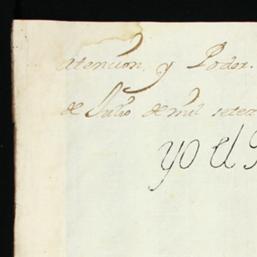 atencion, y Poder.
de Julio de mil sete
yo el R